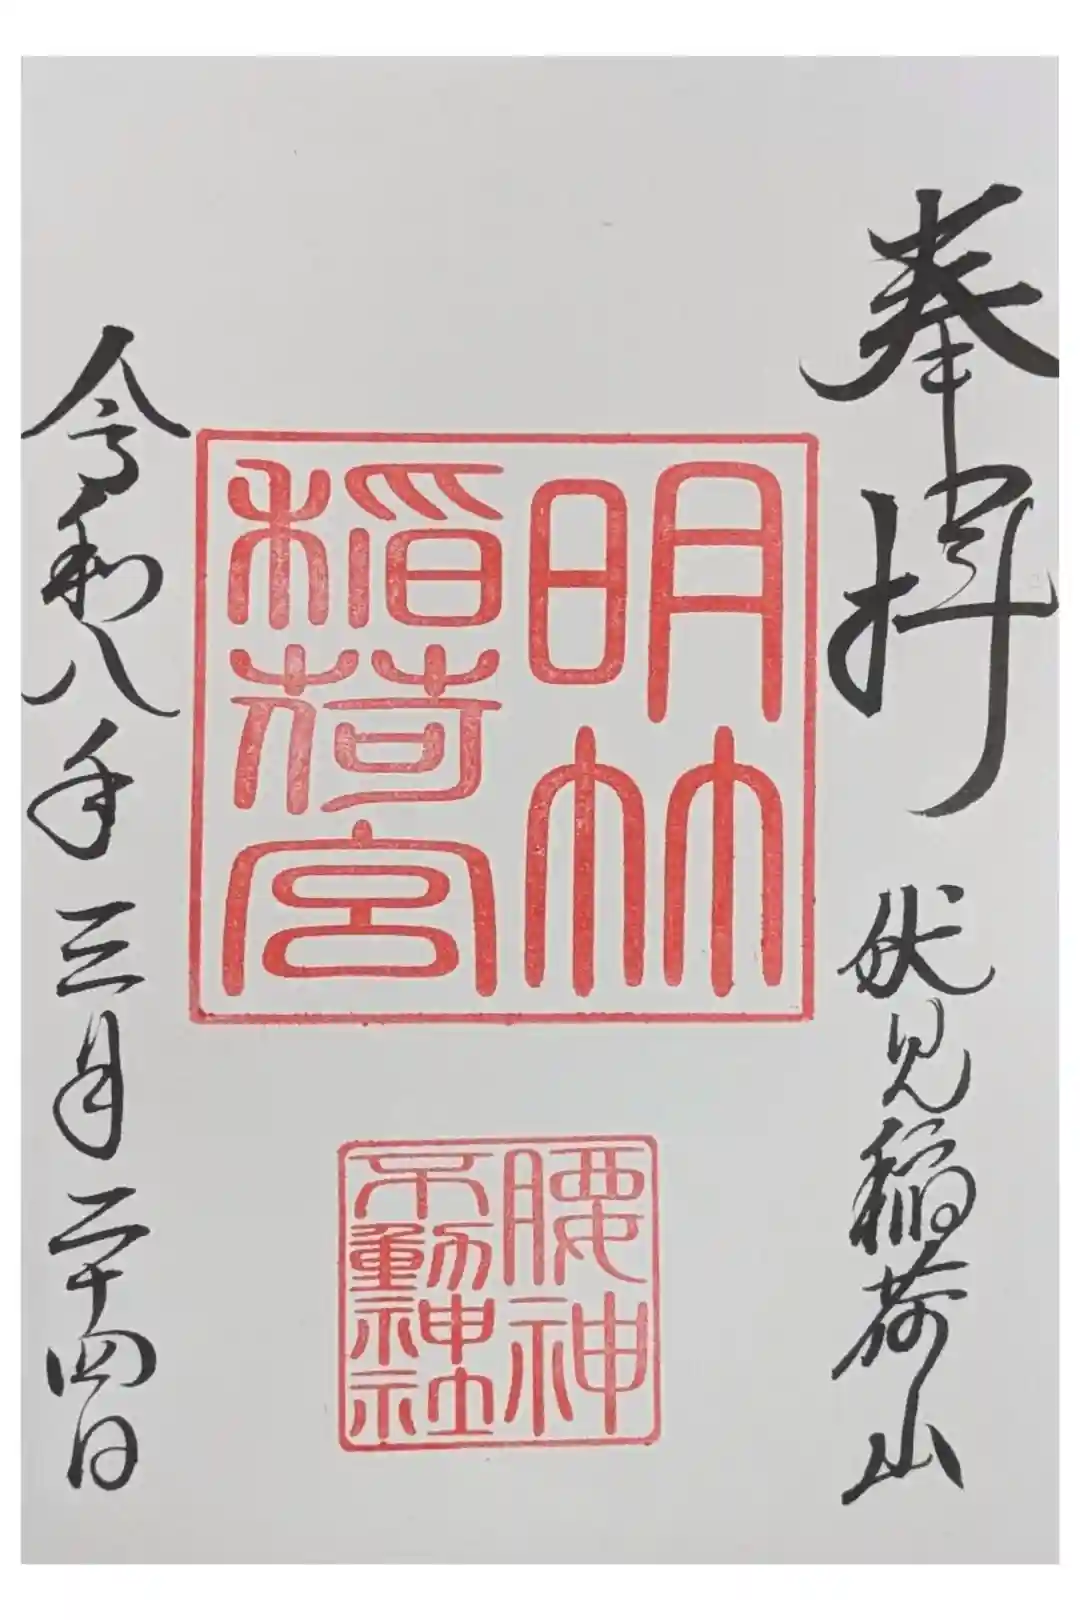 奉拝 伏見稲荷山
明竹
稲荷宮
腰神
不動神社
令和八年三月二十四日